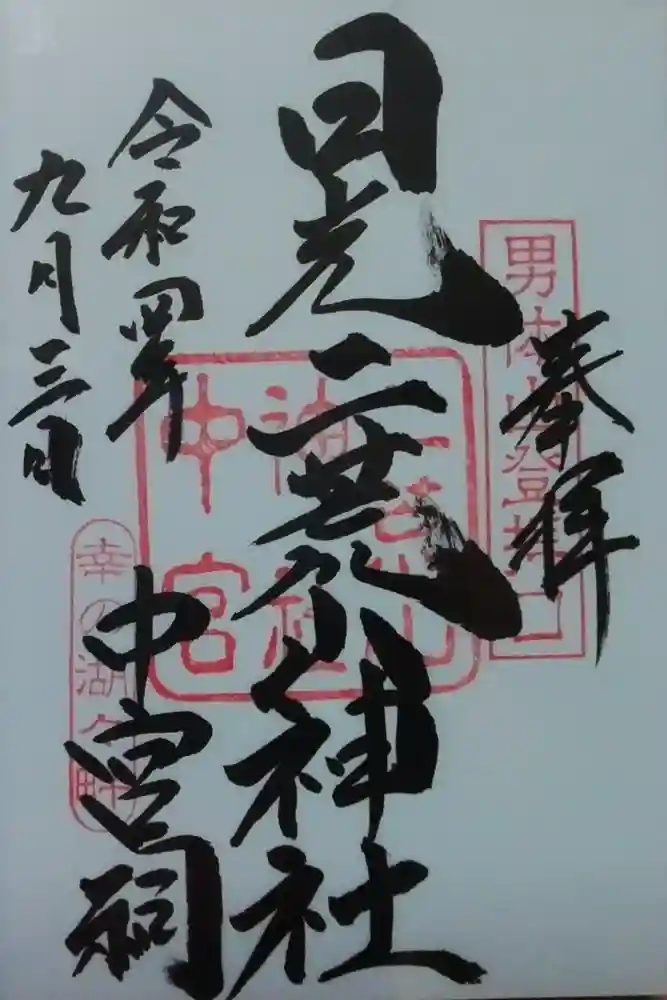 奉拝
男体山登拝口
日光二荒山神社
二荒山
神社
中宮
中宮祠
幸の湖々畔
令和四年
九月三日